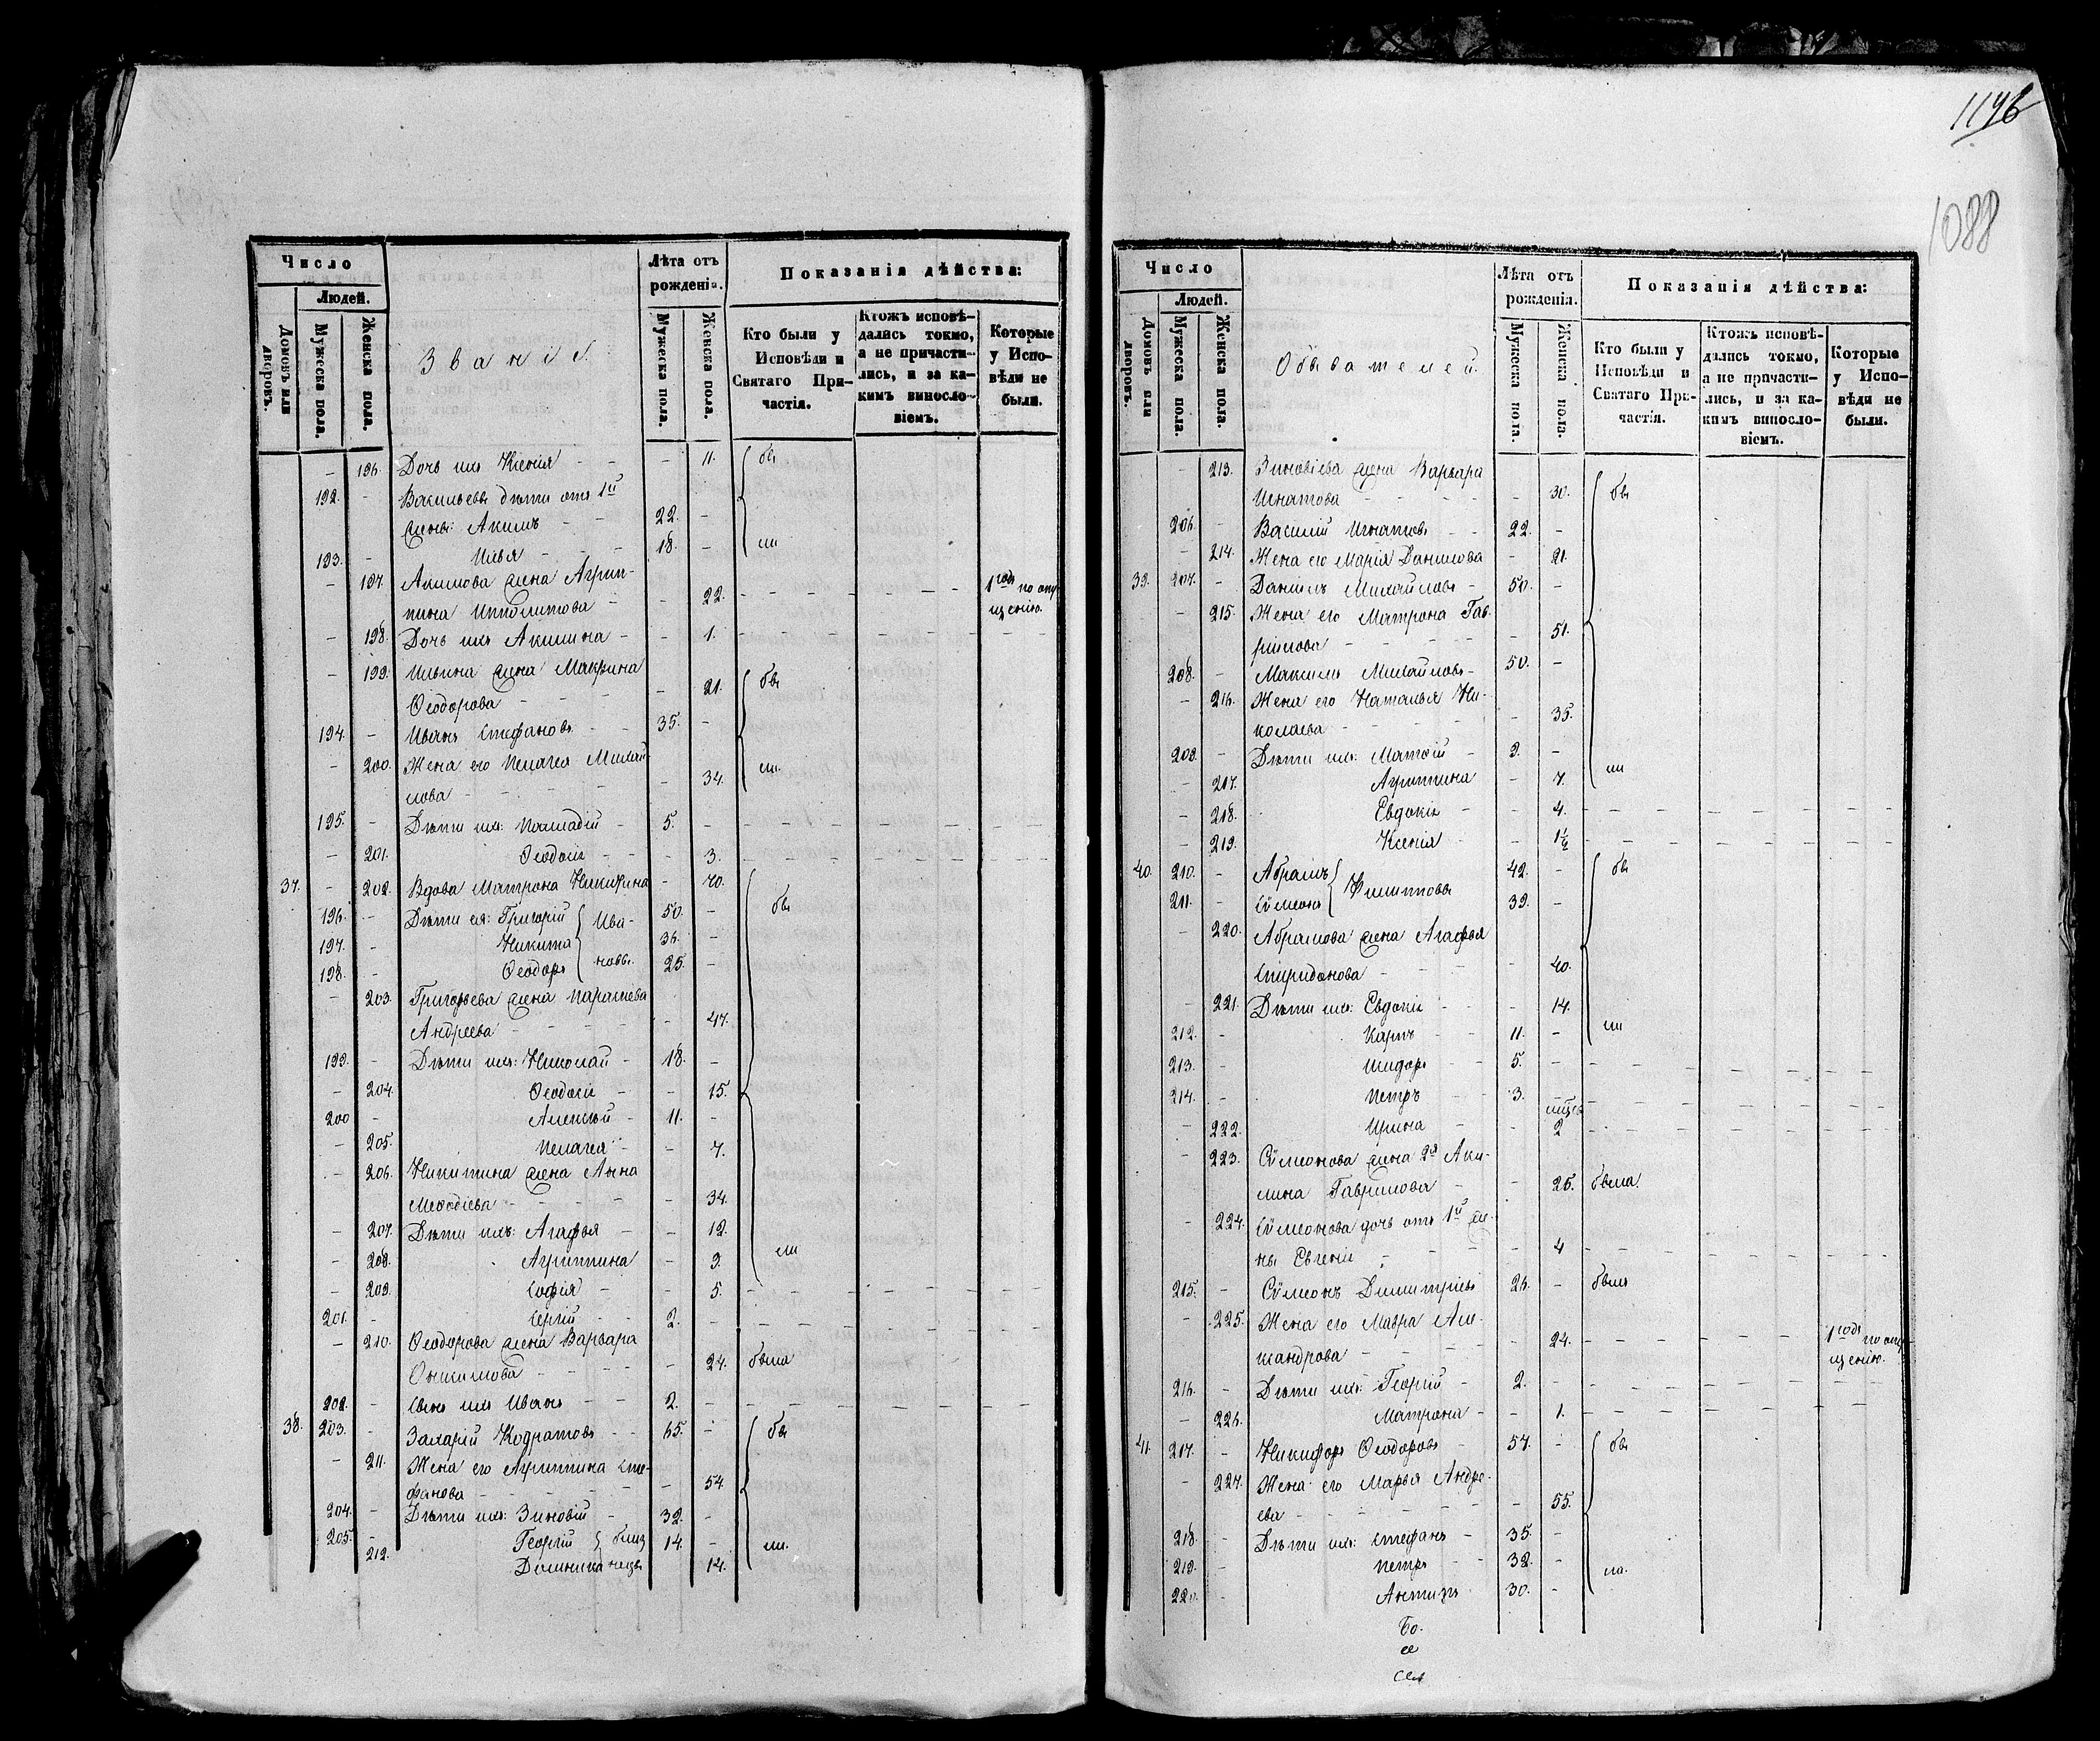 Число
Людей.
Домовъ или дворовъ.
Мужеска пола.
Женска пола.
Званіе.
Лѣта отъ рожденія.
Мужеска пола.
Женска пола.
Показанія дѣйства:
Кто были у Исповѣди и Святаго Причастія.
Ктожъ исповѣдались токмо, а не причастились, и за какимъ винословіемъ.
Которые у Исповѣди не были.
- 196. Дочь ихъ Ксенія - - - 11. бы
192. - Васильевы дѣти отъ 1й
жены: Акимъ - - 22. -
193. - Илья - - - 18. - ли
- 197. Акимова жена Агрип-
пина Ипполитова - - 22. - - - - - - 1 годъ по опу
щенію.
- 198. Дочь ихъ Акилина - - 1. - - - - - - - -
- 199. Ильина жена Макрина
Ѳеодорова - - - - 21. бы
194. - Иванъ Стефановъ - - 35. -
- 200. Жена его Пелагея Михай
лова - - - - - 34. ли.
195. - Дѣти ихъ: Палладій - 5. - - - - - - - -
- 201. Ѳеодосія - - - 3. - - - - - - -
37. - 202. Вдова Матрона Никитина - 70. бы
196. - Дѣти ея: Григорій Ива- 50. -
197. - Никита 36. -
198. - Ѳеодоръ новы. 25. -
- 203. Григорьева жена Параскева
Андреева - - - - - 47.
199. - Дѣти ихъ: Николай - 18. -
- 204. Ѳеодосія - - 15.
200 - Алексѣй - 11. -
- 205. Пелагея - - 7.
- 206. Никитина жена Анна
Меѳодіева - - - - - 34.
- 207. Дѣти ихъ: Агафья - - 12.
- 208. Агриппина - 9. ли
- 209. Софія - - 5. - - - - - - -
201. - Сергій - - 2. - - - - - - - -
- 210. Ѳеодорова жена Варвара
Онисимова - - - 24. была
202. - Сынъ ихъ Иванъ - - 2. - - - - - - - -
38. 203. - Захарій Кодратовъ - - 65. - бы
- 211. Жена его Агриппина Сте-
фанова - - - - - - 54.
204. - Дѣти ихъ: Зиновій - 32. -
205. - Георгій близ 14. - ли.
212. Домника нецы 14.
1146
1088
Число
Людей.
Домовъ или дворовъ.
Мужеска пола.
Женска пола.
Обывателей.
Лѣта отъ рожденія.
Мужеска пола.
Женска пола.
Показанія дѣйства:
Кто были у Исповѣди и Святаго Причастія.
Ктожъ исповѣдались токмо, а не причастились, и за какимъ винословіемъ.
Которые у Исповѣди не были.
- 213. Зиновіева жена Варвара
Игнатова - - - - - 30. бы
206. - Василій Игнатовъ - - 22. -
- 214. Жена его Марія Данилова - 21.
39. 207. - Даніилъ Михайловъ - 50. -
- 215. Жена его Матрона Гав-
рилова - - - - - 51.
208. - Максимъ Михайловъ - 50. -
- 216. Жена его Наталья Ни-
колаева - - - - - 35.
209. - Дѣти ихъ: Матѳій - 9. -
- 217. Агриппина - 7. ли
- 218. Евдокія - - 4. - - - - - - -
- 219. Ксенія - - 1½ - - - - - - -
40. 210. - Абрамъ Филипповы 42. - бы
211. - Сѵмеонъ 39. -
- 220. Абрамова жена Агафья
Спиридонова - - - - 40.
- 221. Дѣти ихъ: Евдокія - - 14.
212. - Карпъ - - 11. - ли
213. - Исидоръ 5. - - - - - - -
214. - Петръ - - 3. - - - - - - -
- 222. Ирина - - мѣсяц. 2 - - - - - - -
- 223. Сѵмеонова жена 2я Аки-
лина Гаврилова - - - 25. была
- 224. Сѵмеонова дочь отъ 1й же-
ны Евгенія - - - - 4 - - - - - - -
215. - Сѵмеонъ Димитріевъ 26. - былъ
- 225. Жена его Мавра Але-
ксандрова - - - - 24. - - - - - 1 годъ по опу-
щенію.
216. - Дѣти ихъ: Георгій - 2. - - - - - - -
- 226. Матрона - - 1. - - - - - - -
41. 217. - Никифоръ Ѳеодоровъ - 57. - бы
- 227. Жена его Марья Андре-
ева - - - - - - 55.
218. - Дѣти ихъ: Стефанъ - 35. -
219. - Петръ - - 32. - ли.
220. - Антипъ 30. -